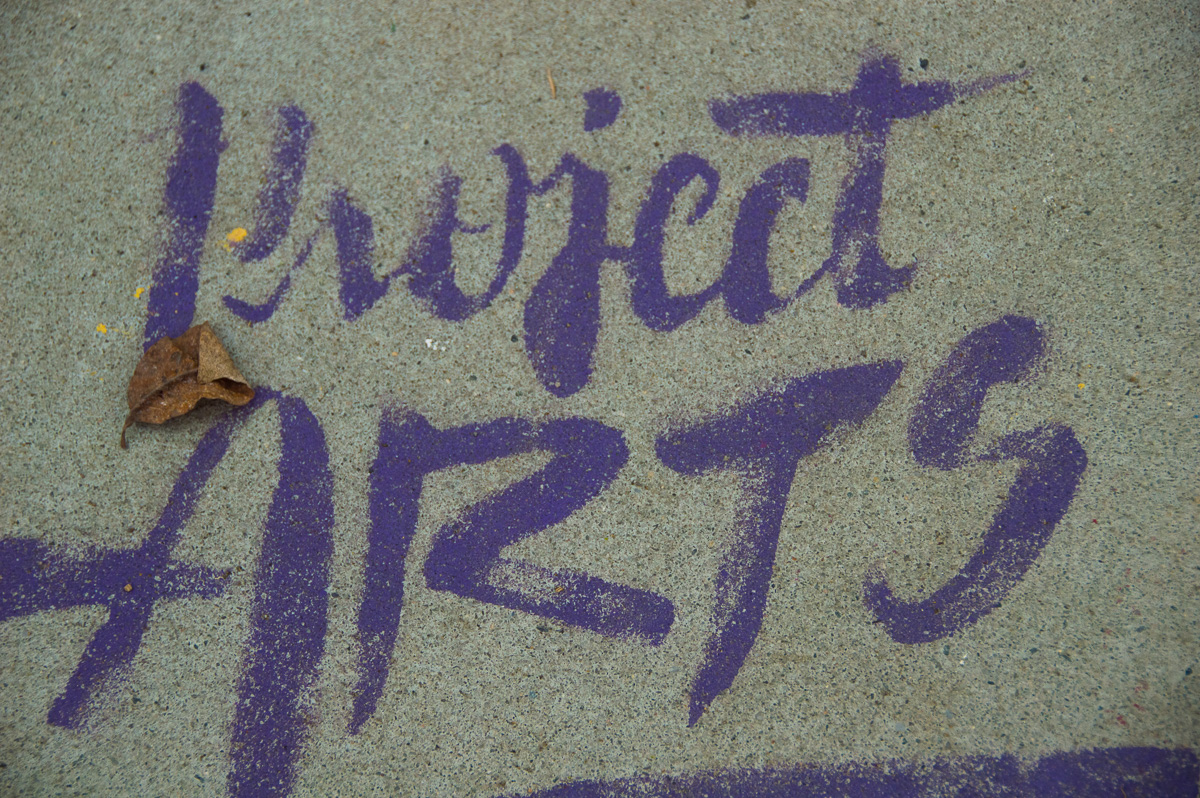 Project
ARTS